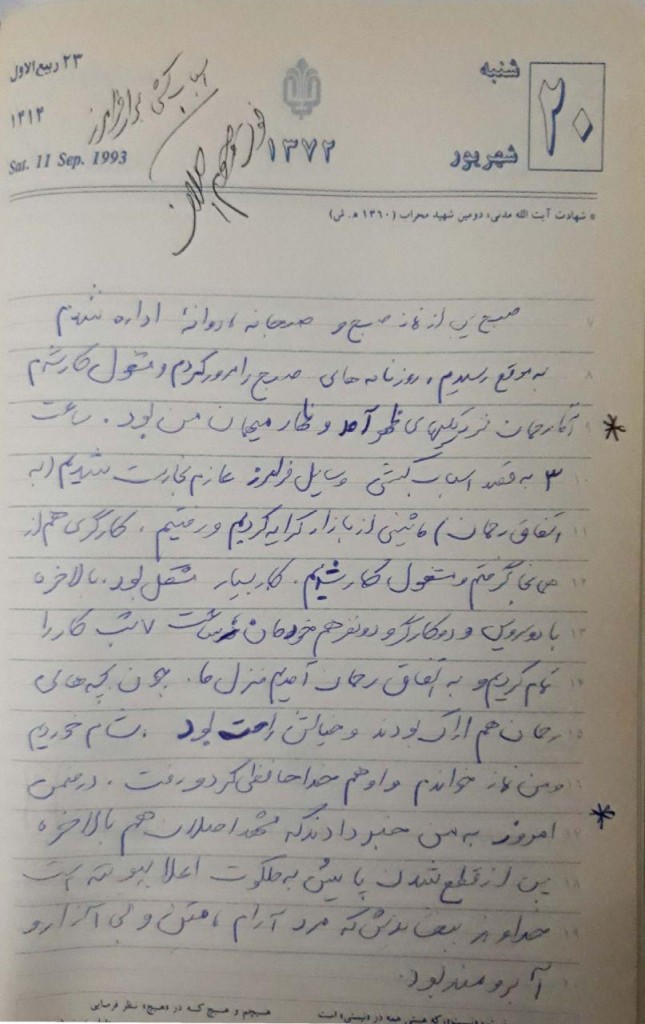 شنبه
۲۰
شهریور
۱۳۷۲
۲۳ ربیع الاول
۱۴۱۴
Sat. 11 Sep. 1993
اسباب کشی برای فرامرز
فوت مرحوم اصلان
* شهادت آیت الله مدنی، دومین شهید محراب (۱۳۶۰ ه. ش)
صبح پس از نماز صبح و صبحانه روانهٔ اداره شدم
به موقع رسیدم، روزنامه های صبح را مرور کردم و مشغول کار شدم
آقا رحمان نزدیکیهای ظهر آمد و نهار میهمان من بود. ساعت
۳ به قصد اسباب کشی وسایل فرامرز عازم تجارت شدیم (به
اتفاق رحمان) ماشینی از بازار کرایه کردیم و رفتیم. کارگری هم از
همانجا گرفتم و مشغول کار شدیم. کار بسیار مشکل بود. بالاخره
با دو سرویس و دو کارگر و دو نفر هم خودمان ساعت ۷ شب کار را
تمام کردیم و به اتفاق رحمان آمدیم منزل ما. چون بچه های
رحمان هم اراک بودند و خیالش راحت بود. شام خوردیم
و من نماز خواندم و او هم خداحافظی کرد و رفت. در ضمن
امروز به من خبر دادند که اصلان هم بالاخره
پس از قطع شدن پایش به ملکوت اعلا پیوسته است
خداوند که مرد آرام، متین و بی آزار و
آبرومند بود.